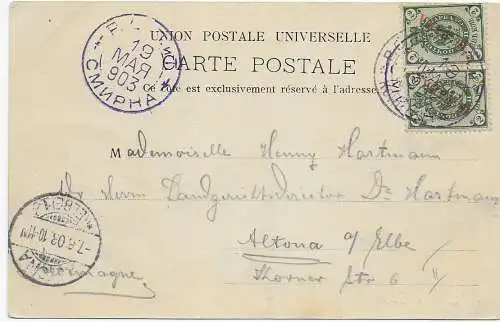 UNION POSTALE UNIVERSELLE
CARTE POSTALE
Ce côté est exclusivement réservé à l'adresse
19
МАЯ
903
СМИРНА
Mademoiselle Henny Hartmann
Herrn Landgerichtsdirektor Dr Hartmann
Altona a/ Elbe
Allemagne
Thorner Str 6 II
7.6.03.10-11V